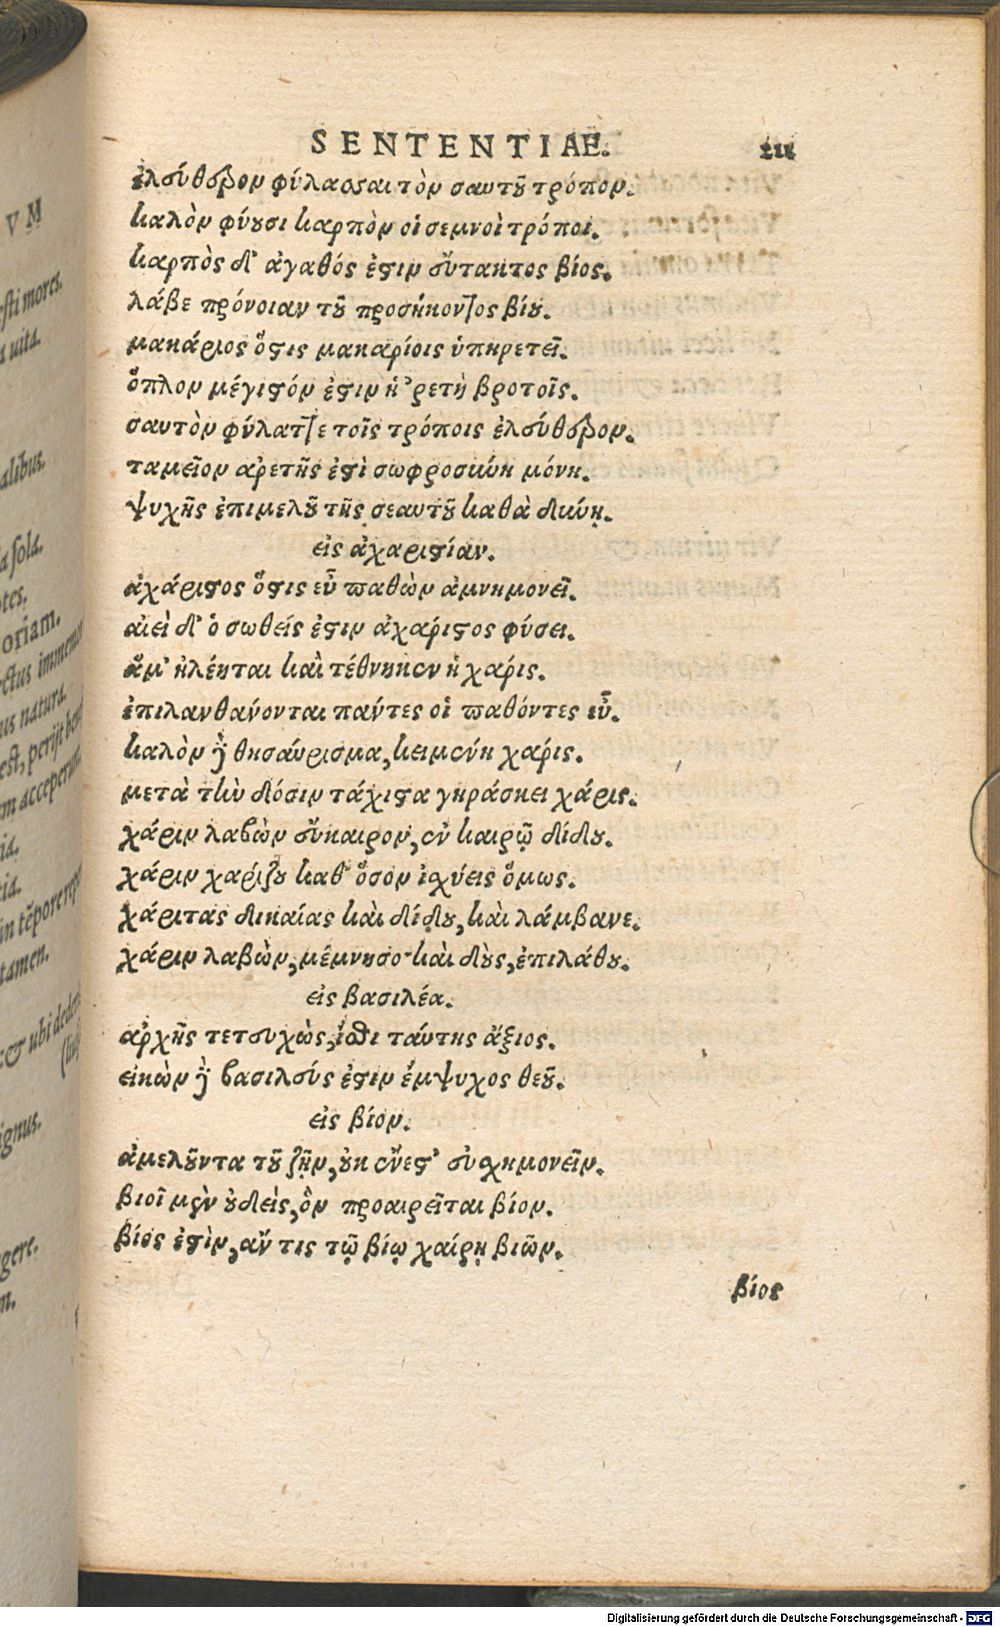 SENTENTIAE.
ἐλεύθερον φύλασσαι τὸν σαυτοῦ τρόπον.
καλὸν φύουσι καρπὸν οἱ σεμνοὶ τρόποι.
καρπὸς δ' ἀγαθός ἐστιν εὔτακτος βίος.
λάβε πρόνοιαν τοῦ προσήκοντος βίου.
μακάριος ὅστις μακαρίοις ὑπηρετεῖ.
ὅπλον μέγιστόν ἐστιν ἡ 'ρετὴ βροτοῖς.
σαυτὸν φύλαττε τοῖς τρόποις ἐλεύθερον.
ταμεῖον ἀρετῆς ἐστὶ σωφροσύνη μόνη.
ψυχῆς ἐπιμελοῦ τῆς σεαυτοῦ καθὰ δύνῃ.
εἰς ἀχαριστίαν.
ἀχάριστος ὅστις εὖ παθὼν ἀμνημονεῖ.
αἰεὶ δ' ὁ σωθείς ἐστιν ἀχάριστος φύσει.
ἅμ' ἠλέηται καὶ τέθνηκεν ἡ χάρις.
ἐπιλανθάνονται πάντες οἱ παθόντες εὖ.
καλὸν γὰρ θησαύρισμα, κειμένη χάρις.
μετὰ τὴν δόσιν τάχιστα γηράσκει χάρις.
χάριν λαβὼν εὔκαιρον, ἐν καιρῷ δίδου.
χάριν χαρίζου καθ' ὅσον ἰσχύεις ὅμως.
χάριτας δικαίας καὶ δίδου, καὶ λάμβανε.
χάριν λαβὼν, μέμνησο· καὶ δοὺς, ἐπιλάθου.
εἰς βασιλέα.
ἀρχῆς τετευχὼς, ἴσθι ταύτης ἄξιος.
εἰκὼν γὰρ βασιλεύς ἐστιν ἔμψυχος θεοῦ.
εἰς βίον.
ἀμελοῦντα τοῦ ζῆν, οὐκ ἔνεστ' εὐσχημονεῖν.
βιοῖ μὲν οὐδεὶς, ὃν προαιρεῖται βίον.
βίος ἐστὶν, ἄν τις τῷ βίῳ χαίρῃ βιῶν.
βίος
Digitalisierung gefördert durch die Deutsche Forschungsgemeinschaft - DFG